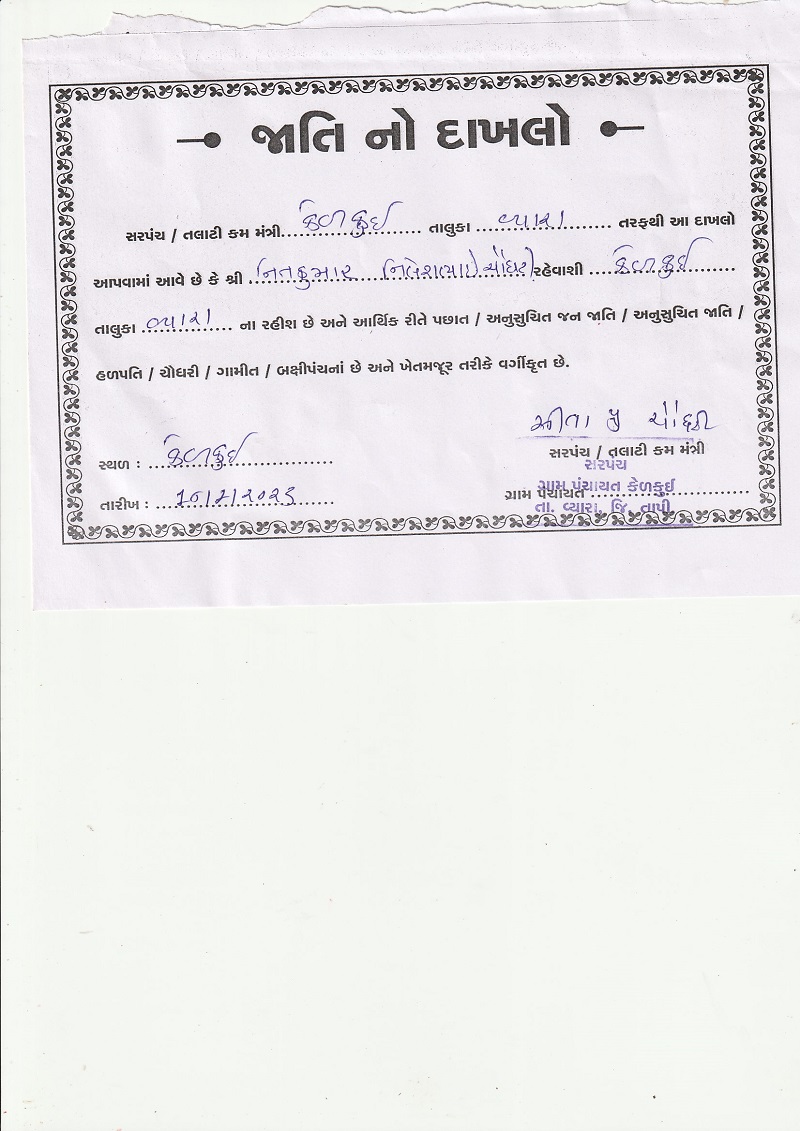 જાતિ નો દાખલો
સરપંચ / તલાટી કમ મંત્રી કેળકુઈ તાલુકા વ્યારા તરફથી આ દાખલો
આપવામાં આવે છે કે શ્રી નિતકુમાર નિલેશભાઈ ચૌધરી રહેવાશી કેળકુઈ
તાલુકા વ્યારા ના રહીશ છે અને આર્થિક રીતે પછાત / અનુસુચિત જન જાતિ / અનુસુચિત જાતિ /
હળપતિ / ચૌધરી / ગામીત / બક્ષીપંચનાં છે અને ખેતમજૂર તરીકે વર્ગીકૃત છે.
ચૌધરી
સ્થળ : કેળકુઈ
સરપંચ / તલાટી કમ મંત્રી
સરપંચ
તારીખ :
ગ્રામ પંચાયત
ગ્રામ પંચાયત કેળકુઈ
તા. વ્યારા, જિ. તાપી